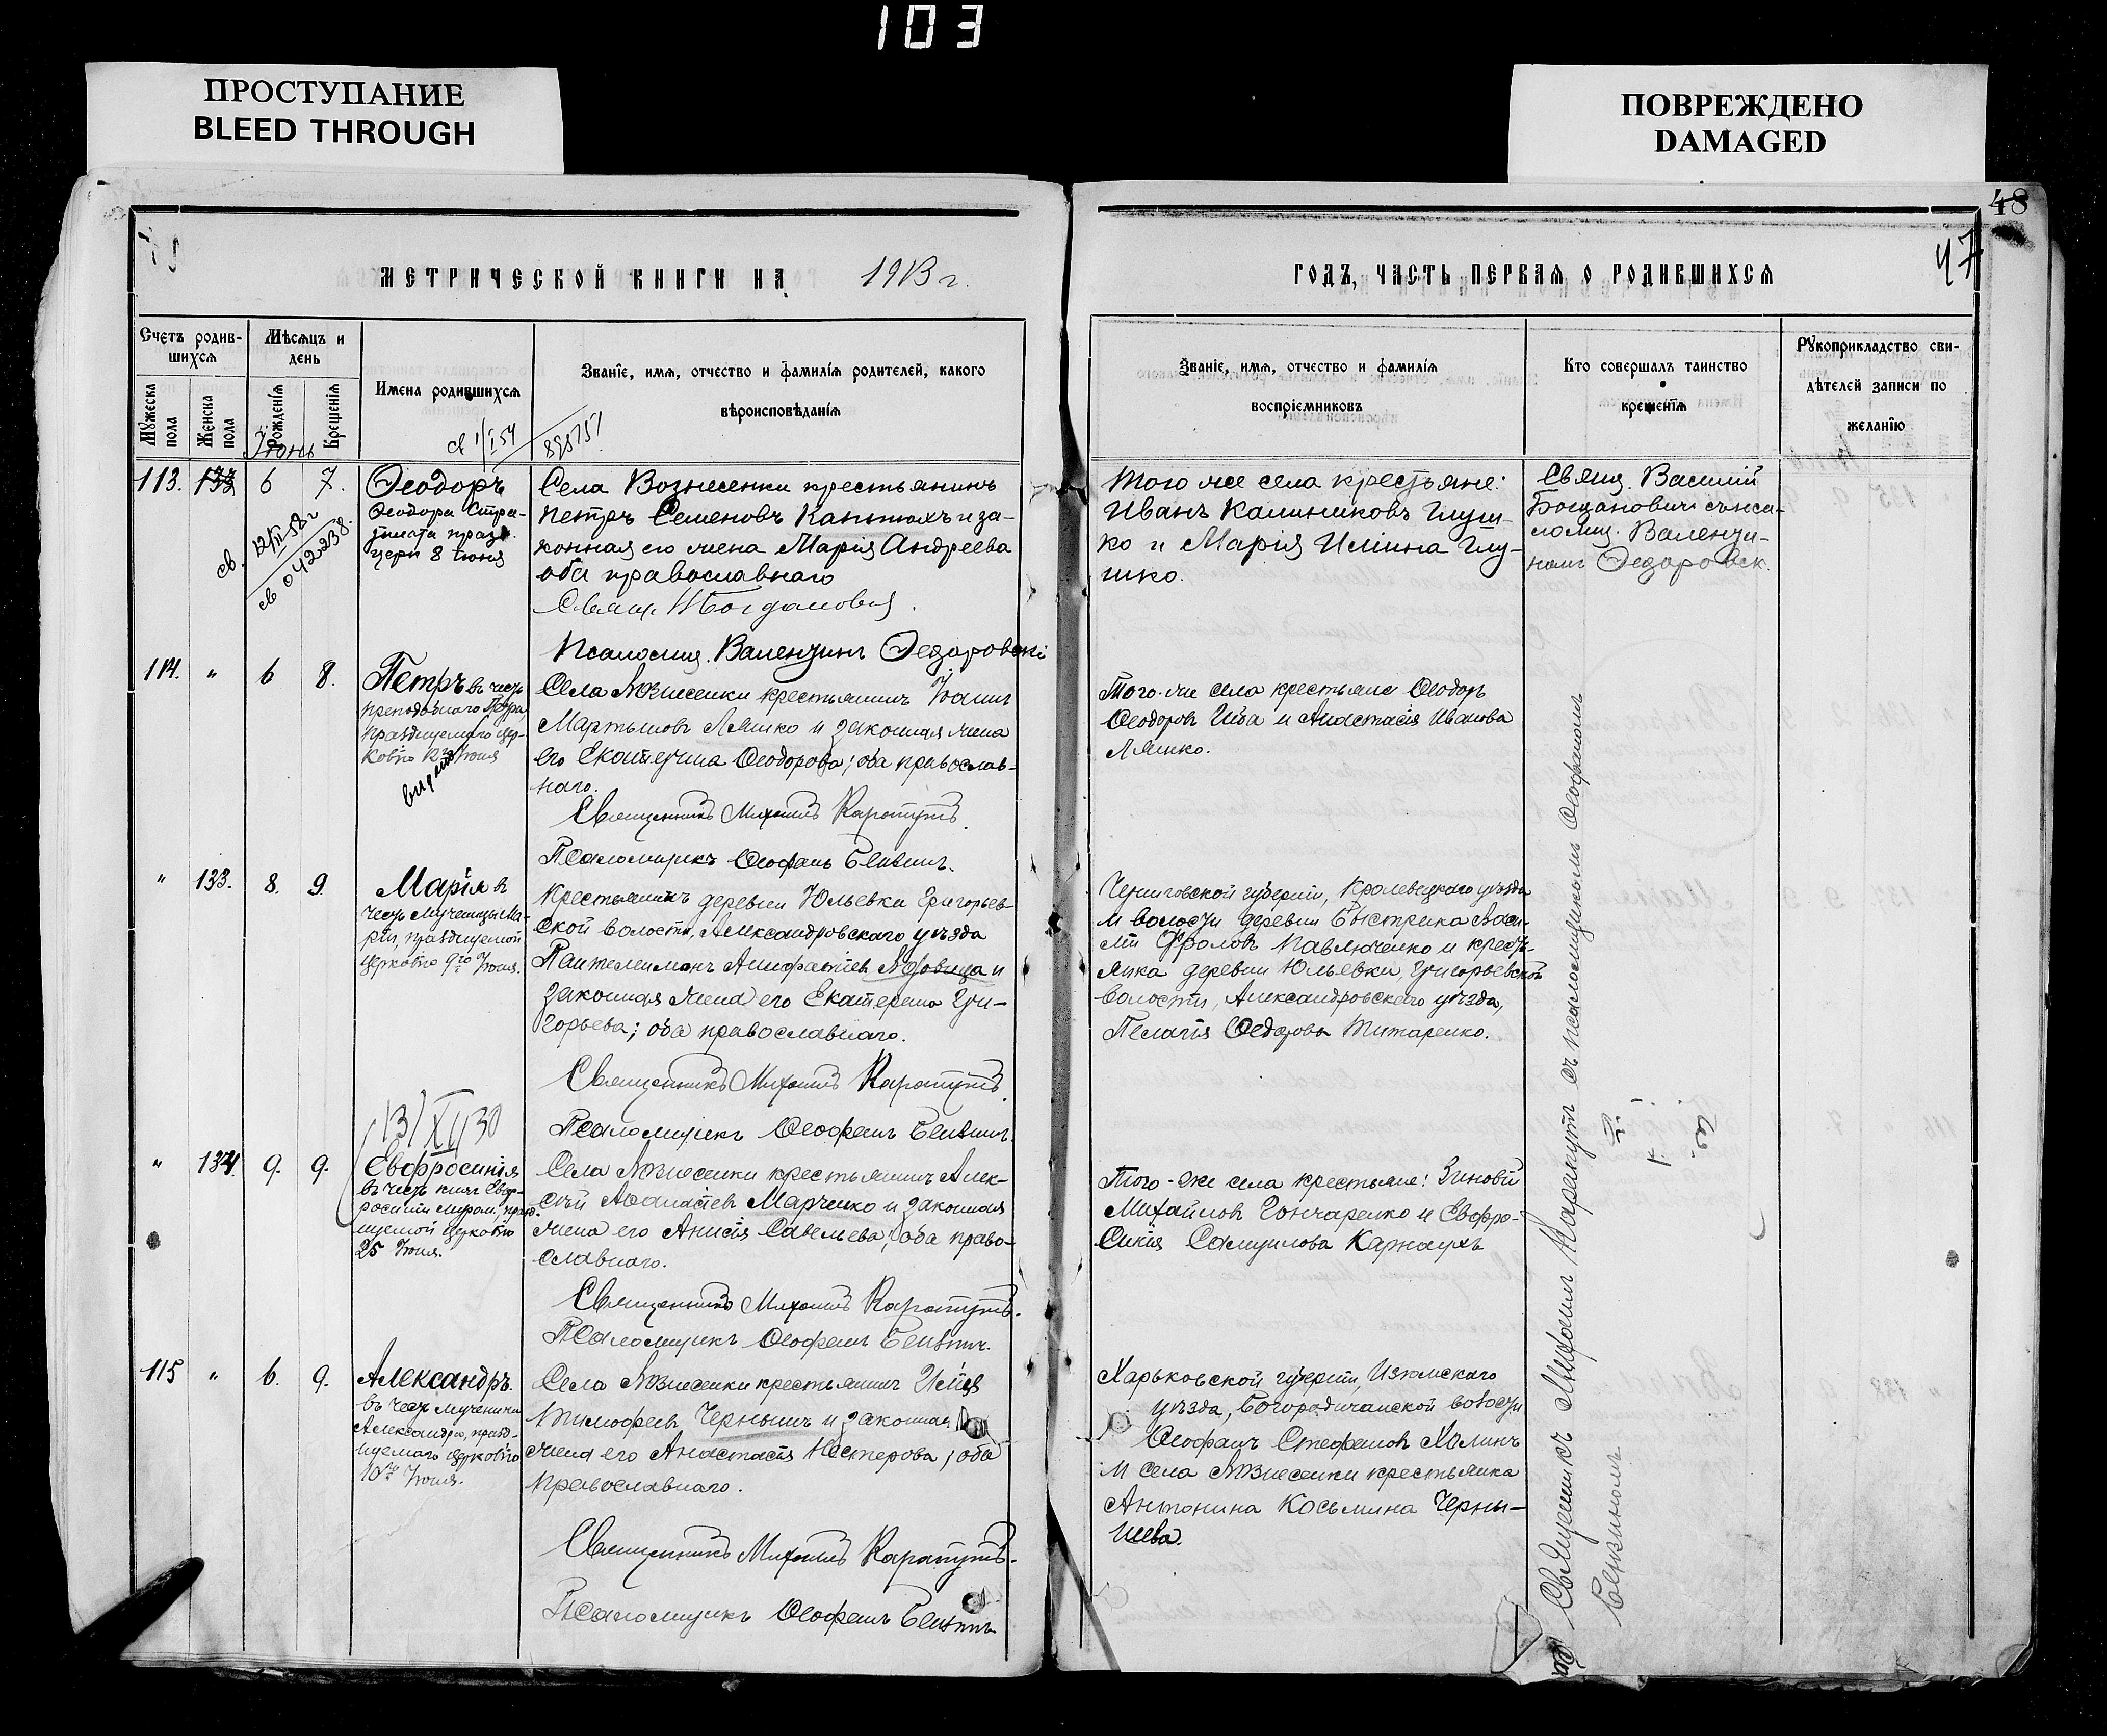 103
ПРОСТУПАНИЕ
BLEED THROUGH
ПОВРЕЖДЕНО
DAMAGED
48
47
МЕТРИЧЕСКОЙ КНИГИ НА 1913 г.
ГОДЪ, ЧАСТЬ ПЕРВАЯ О РОДИВШИХСЯ
Счетъ родив-
шихся
Мужеска
пола
Женска
пола
Мѣсяцъ и
день
Рожденія
Крещенія
Имена родившихся
Званіе, имя, отчество и фамилія родителей, какого
вѣроисповѣданія
Званіе, имя, отчество и фамилія
воспріемниковъ
Кто совершалъ таинство
крещенія
Рукоприкладство сви-
дѣтелей записи по
желанію
Іюнь
113. 133 6 7.
Ѳеодоръ
Ѳеодора Стра-
тилата празд.
церк 8 іюня
св. 12/II-58 г
св 042238.
Села Вознесенки крестьянинъ
Петръ Семеновъ Каптюхъ и за-
конная его жена Марія Андреева
оба православнаго
Свящ.
Псаломщ. Валентинъ Ѳедоровскі
Того же села крестьяне:
Иванъ Калиниковъ Глуш-
ко и Марія Иліина Глу-
шко.
Свящ. Василій
Богдановичъ съ пса-
ломщ. Валенти-
номъ Ѳедоровск.
114. " 6 8.
Петръ въ честь
преподобнаго Петра,
празднуемаго цер-
ковію 12го Іюня
видано
Села Вознесенки крестьянинъ Іоаннъ
Мартыновъ Ляшко и законная жена
его Екатерина Ѳеодорова; оба православ-
наго.
Священникъ Михаилъ
Псаломщикъ Ѳеофанъ
Того-же села крестьяне Ѳеодоръ
Ѳеодоровъ и Анастасія Иванова
Ляшко.
" 133. 8. 9.
Марія въ
честь мученицы Ма-
ріи, празднуемой
церковію 9го Іюня.
Крестьянинъ деревни Юльевки Григорьев-
ской волости, Александровскаго уѣзда
Пантелеимонъ и
законная жена его Екатерина Гри-
горьева; оба православнаго.
Священникъ Михаилъ
Псаломщикъ Ѳеофанъ
Черниговской губерніи, Кролевецкаго уѣзда
и волости деревни Быстрика Васи-
лій Фроловъ Павлюченко и кресть-
янка деревни Юльевки, Григорьевской
волости, Александровскаго уѣзда,
Пелагія Ѳедорова Титаренко.
13/XII 30
" 134. 9. 9.
Евфросинія
въ честь княг. Евф-
росиніи Муром., празд-
нуемой церковію
25 Іюня.
Села Вознесенки крестьянинъ Алек-
сѣй Аѳанасіевъ Марченко и законная
жена его Анисія Савельева; оба право-
славнаго.
Священникъ Михаилъ
Псаломщикъ Ѳеофанъ
Того-же села крестьяне: Зиновій
Михайловъ Гончаренко и Евфро-
синія Самуилова Карнаухъ
115 " 6. 9.
Александръ.
въ честь мученика
Александра, празд-
нуемаго церковію
10го Іюня.
Села Вознесенки крестьянинъ Илія
Тимофеевъ Чернышъ и законная
жена его Анастасія Нестерова; оба
православнаго.
Священникъ Михаилъ
Псаломщикъ Ѳеофанъ
Харьковской губерніи, Изюмскаго
уѣзда, Богородичанской волости
Ѳеофанъ Стефановъ Халинъ
и села Вознесенки крестьянка
Антонина Косьмина Черны-
шева.
Священникъ Михаилъ съ псаломщикомъ Ѳеофаномъ